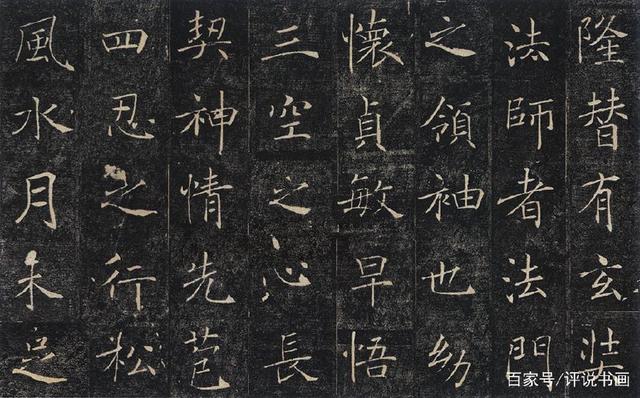 隆替有玄奘
法師者法門
之領袖也幼
懷貞敏早悟
三空之心長
契神情先苞
四忍之行松
風水月未足
百家号/评说书画